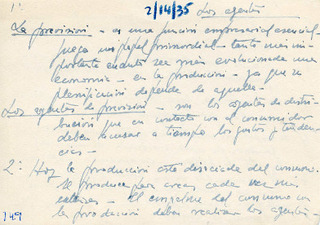 1º
2/14/35 Los agentes
La prevision - es una funcion empresarial esencial -
juega un papel primordial - tanto mas im-
portante cuanto sea más evolucionada una
economia - en la producción - ya que su
planificación depende de aquella -
Los agentes de prevision - son los agentes de distri-
bución que en contacto con el consumidor
deben acusar a tiempo los gustos y tenden-
cias -
2º Hoy la producción está disociada del consumo.
Se produce para crear cada vez más
El engolve del consumo con
la producción deben realizar los agentes -
149